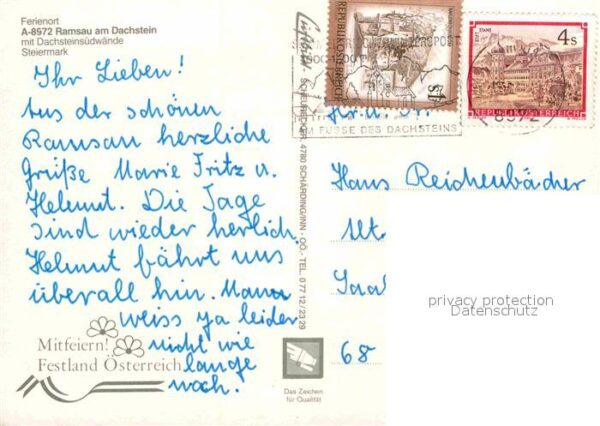 Ferienort
A-8972 Ramsau am Dachstein
mit Dachsteinsüdwände
Steiermark
Ihr Lieben!
Aus der schönen
Ramsau herzliche
Grüße Marie Fritz u.
Helmut. Die Tage
sind wieder herlich.
Helmut fährt uns
überall hin. Mann
weiss ja leider
nicht wie
lange
noch.
Mitfeiern!
Festland Österreich
4780 SCHÄRDING/INN - OÖ. - TEL. 0 77 12/23 29
Das Zeichen
für Qualität
REPUBLIK ÖSTERREICH
S1
4s
STIFT
REPUBLIK ÖSTERREICH
AM FUSSE DES DACHSTEINS
Hans Reichenbächer
Alt
Saal
68
privacy protection
Datenschutz